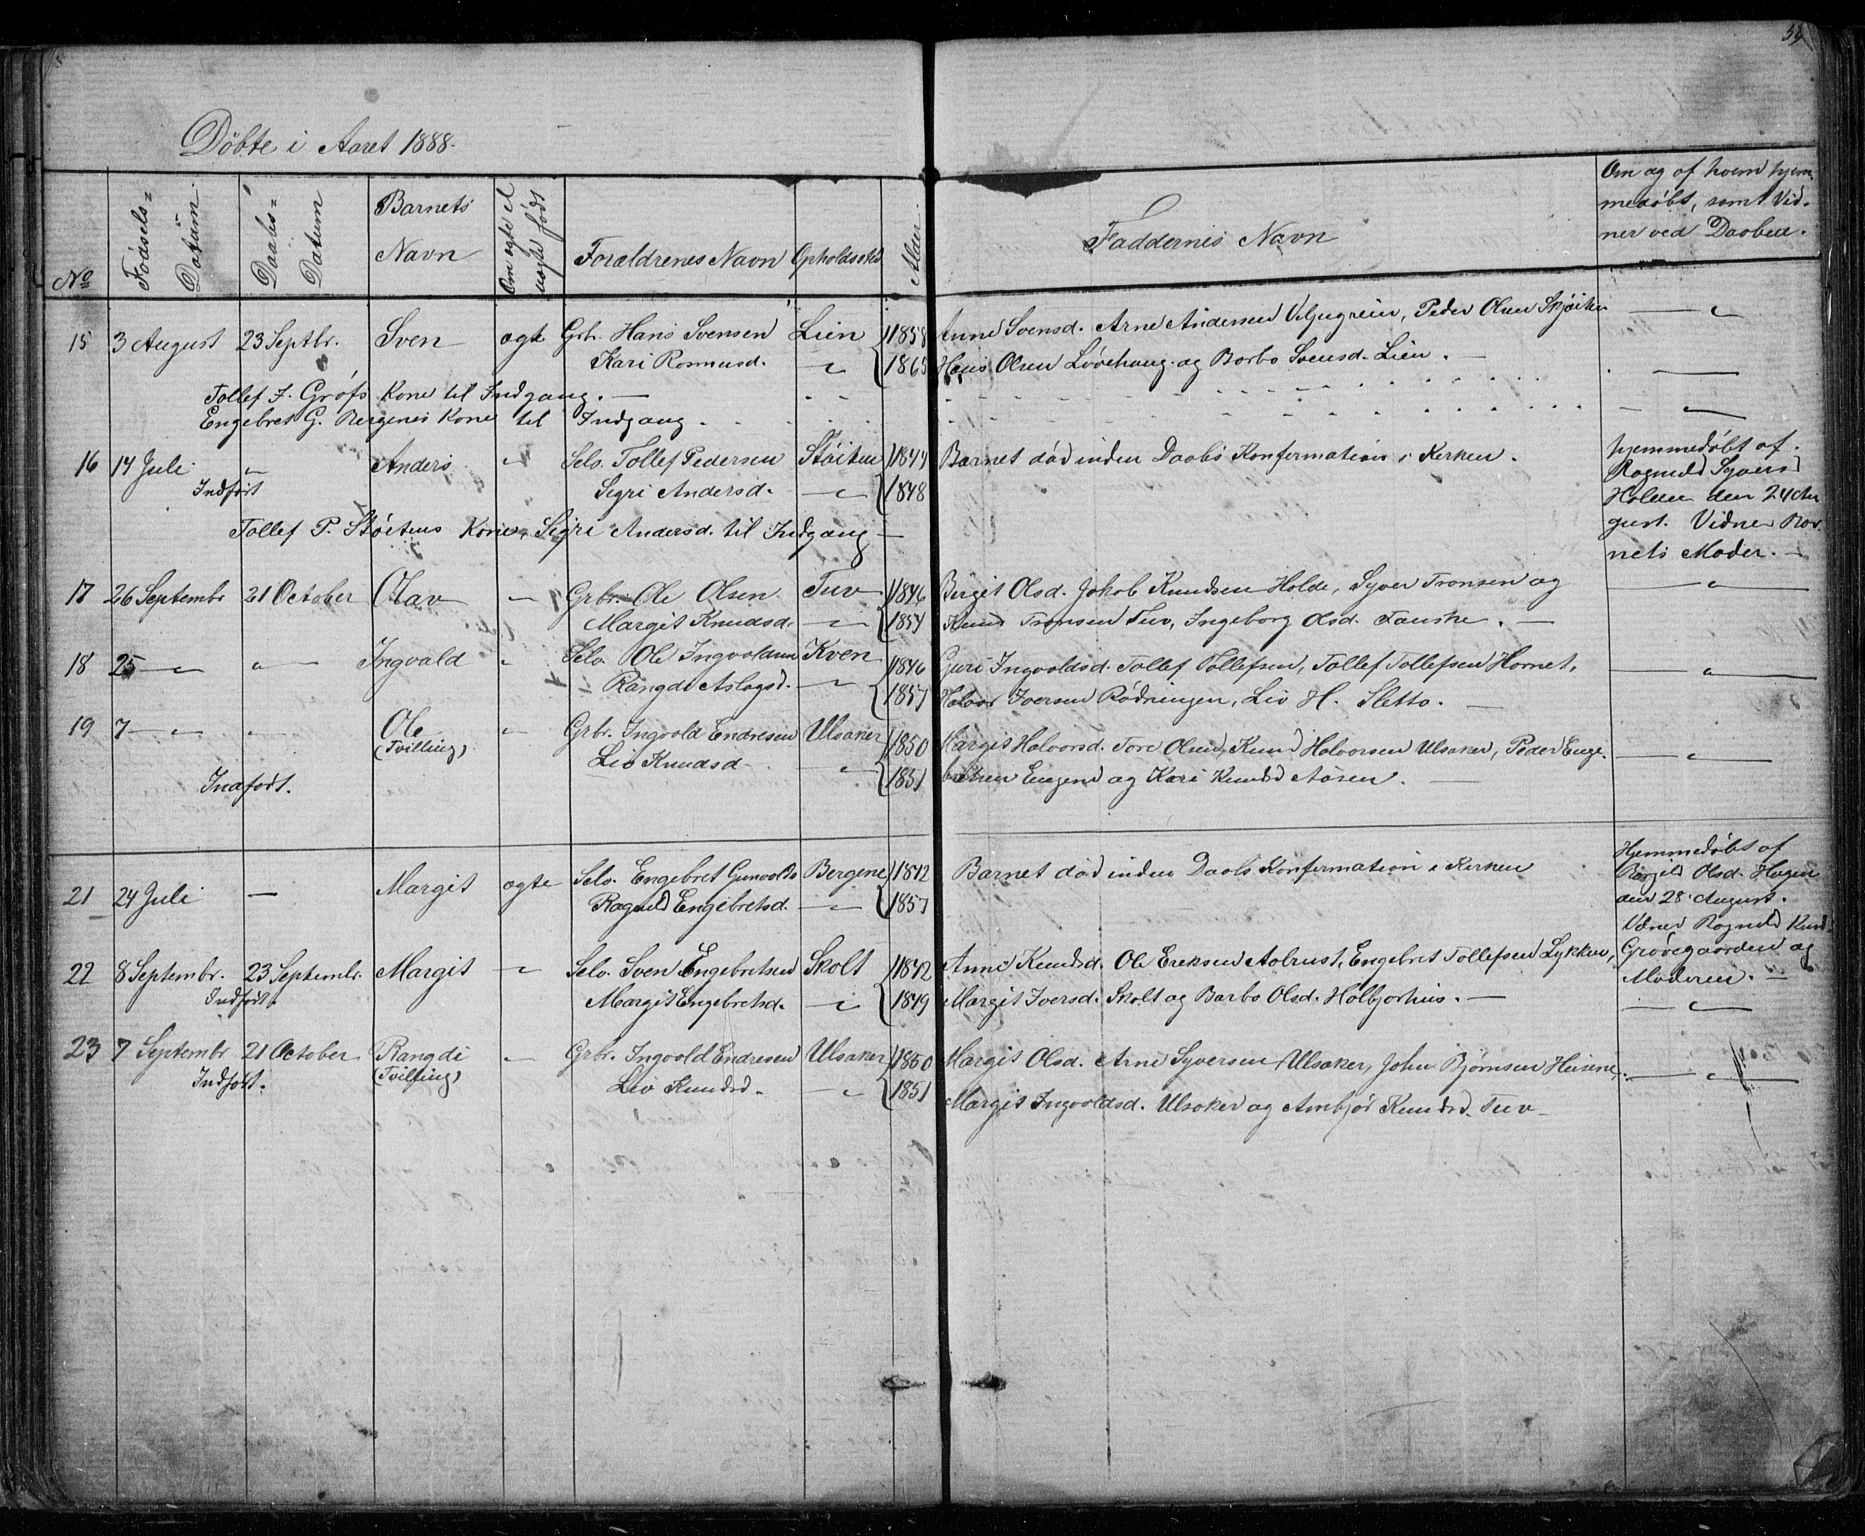 59
Döbte i Aaret 1888.
No
Födsels=Datum.
Daabs=Datum
Barnets Navn
Om ægte el uægte födt
Forældrenes Navn
Opholdssted
Alder.
Faddernes Navn
Om og af hvem hjemmedöbt, samt Vidner ved Daaben.
15 3 August 23 Septbr. Sven ægte Gbr. Hans Svensen Lien 1858 Anne Svensd. Arne Andersen Peder Olsen Skjöiten
Kari Rasmusd. " 1865 Hans Olsen Lövehaug og Barbo Svensd. Lien. — "
Tollef J. Gröfs Kone til Indgang. —
Engebret G. Bergenes Kone til Indgang
16 14 Juli " Anders " Selv. Tollef Pedersen Stöiten 1844 Barnet död inden Daabs Konfermation i Kirken. hjemmedöbt af
Indfört Sigri Andersd. " 1848 Ragnild Syversd
Holden den 24 Au
Tollef P. Stöitens Kone, Sigri Andersd. til Indgang — gust. Vidne Bar
nets Moder. —
17 26 Septembr 21 October Olav " Gbr. Ole Olsen Tuv 1846 Birgit Olsd. Jakob Knudsen Holde, Syver Tronsen og "
Margit Knudsd. " 1854 Knud Tronsen Tuv, Ingeborg Olsd. Fauske. —
18 25 — " — " — Ingvald " Selv. Ole Ingvaldsen Kven 1846 Guri Ingvaldsd. Tollef Tollefsen, Tollef Tollefsen Hornet, "
Rangdi Aslagsd. " 1857 Halvor Iversen Rödningen, Liv H. Sletto. —
19 7 — " — " — Ole " Gbr. Ingvald Endresen Ulsaker 1850 Margit Halvorsd. Tore Olsen, Knud Halvorsen Ulsaker, Peder Enge- "
(Tvilling) Liv Knudsd " 1851 bretsen Eugend og Kari Knudsd Aasen. —
Indfört.
21 24 Juli — Margit ægte Selv. Engebret Gunvolds Bergene 1842 Barnet död inden Daabs Konfermation i Kirken Hjemmedöbt af
Ragnild Engebretsd. " 1857 Olsd. Hagen
den 28 August.
Vidner Ragnild Knud
22 8 Septembr. 23 Septembr. Margit " Selv. Sven Engebretsen Skolt 1842 Anne Knudsd. Ole Eriksen Aalrust, Engebret Tollefsen Lykken, Grövegaarden og
Indfört. Margit Engebretsd. " 1849 Margit Iversd. Skolt og Barbo Olsd. Halbjorhus. — Moderen. — "
23 7 Septembr 21 October Rangdi " Gbr. Ingvald Endresen Ulsaker 1850 Margit Olsd. Arne Syversen Ulsaker, John Björnsen Heisene, "
Indfört. (Tvilling) Liv Knudsd. " 1851 Margit Ingvaldsd. Ulsaker og Ambjör Knudsd. Tuv